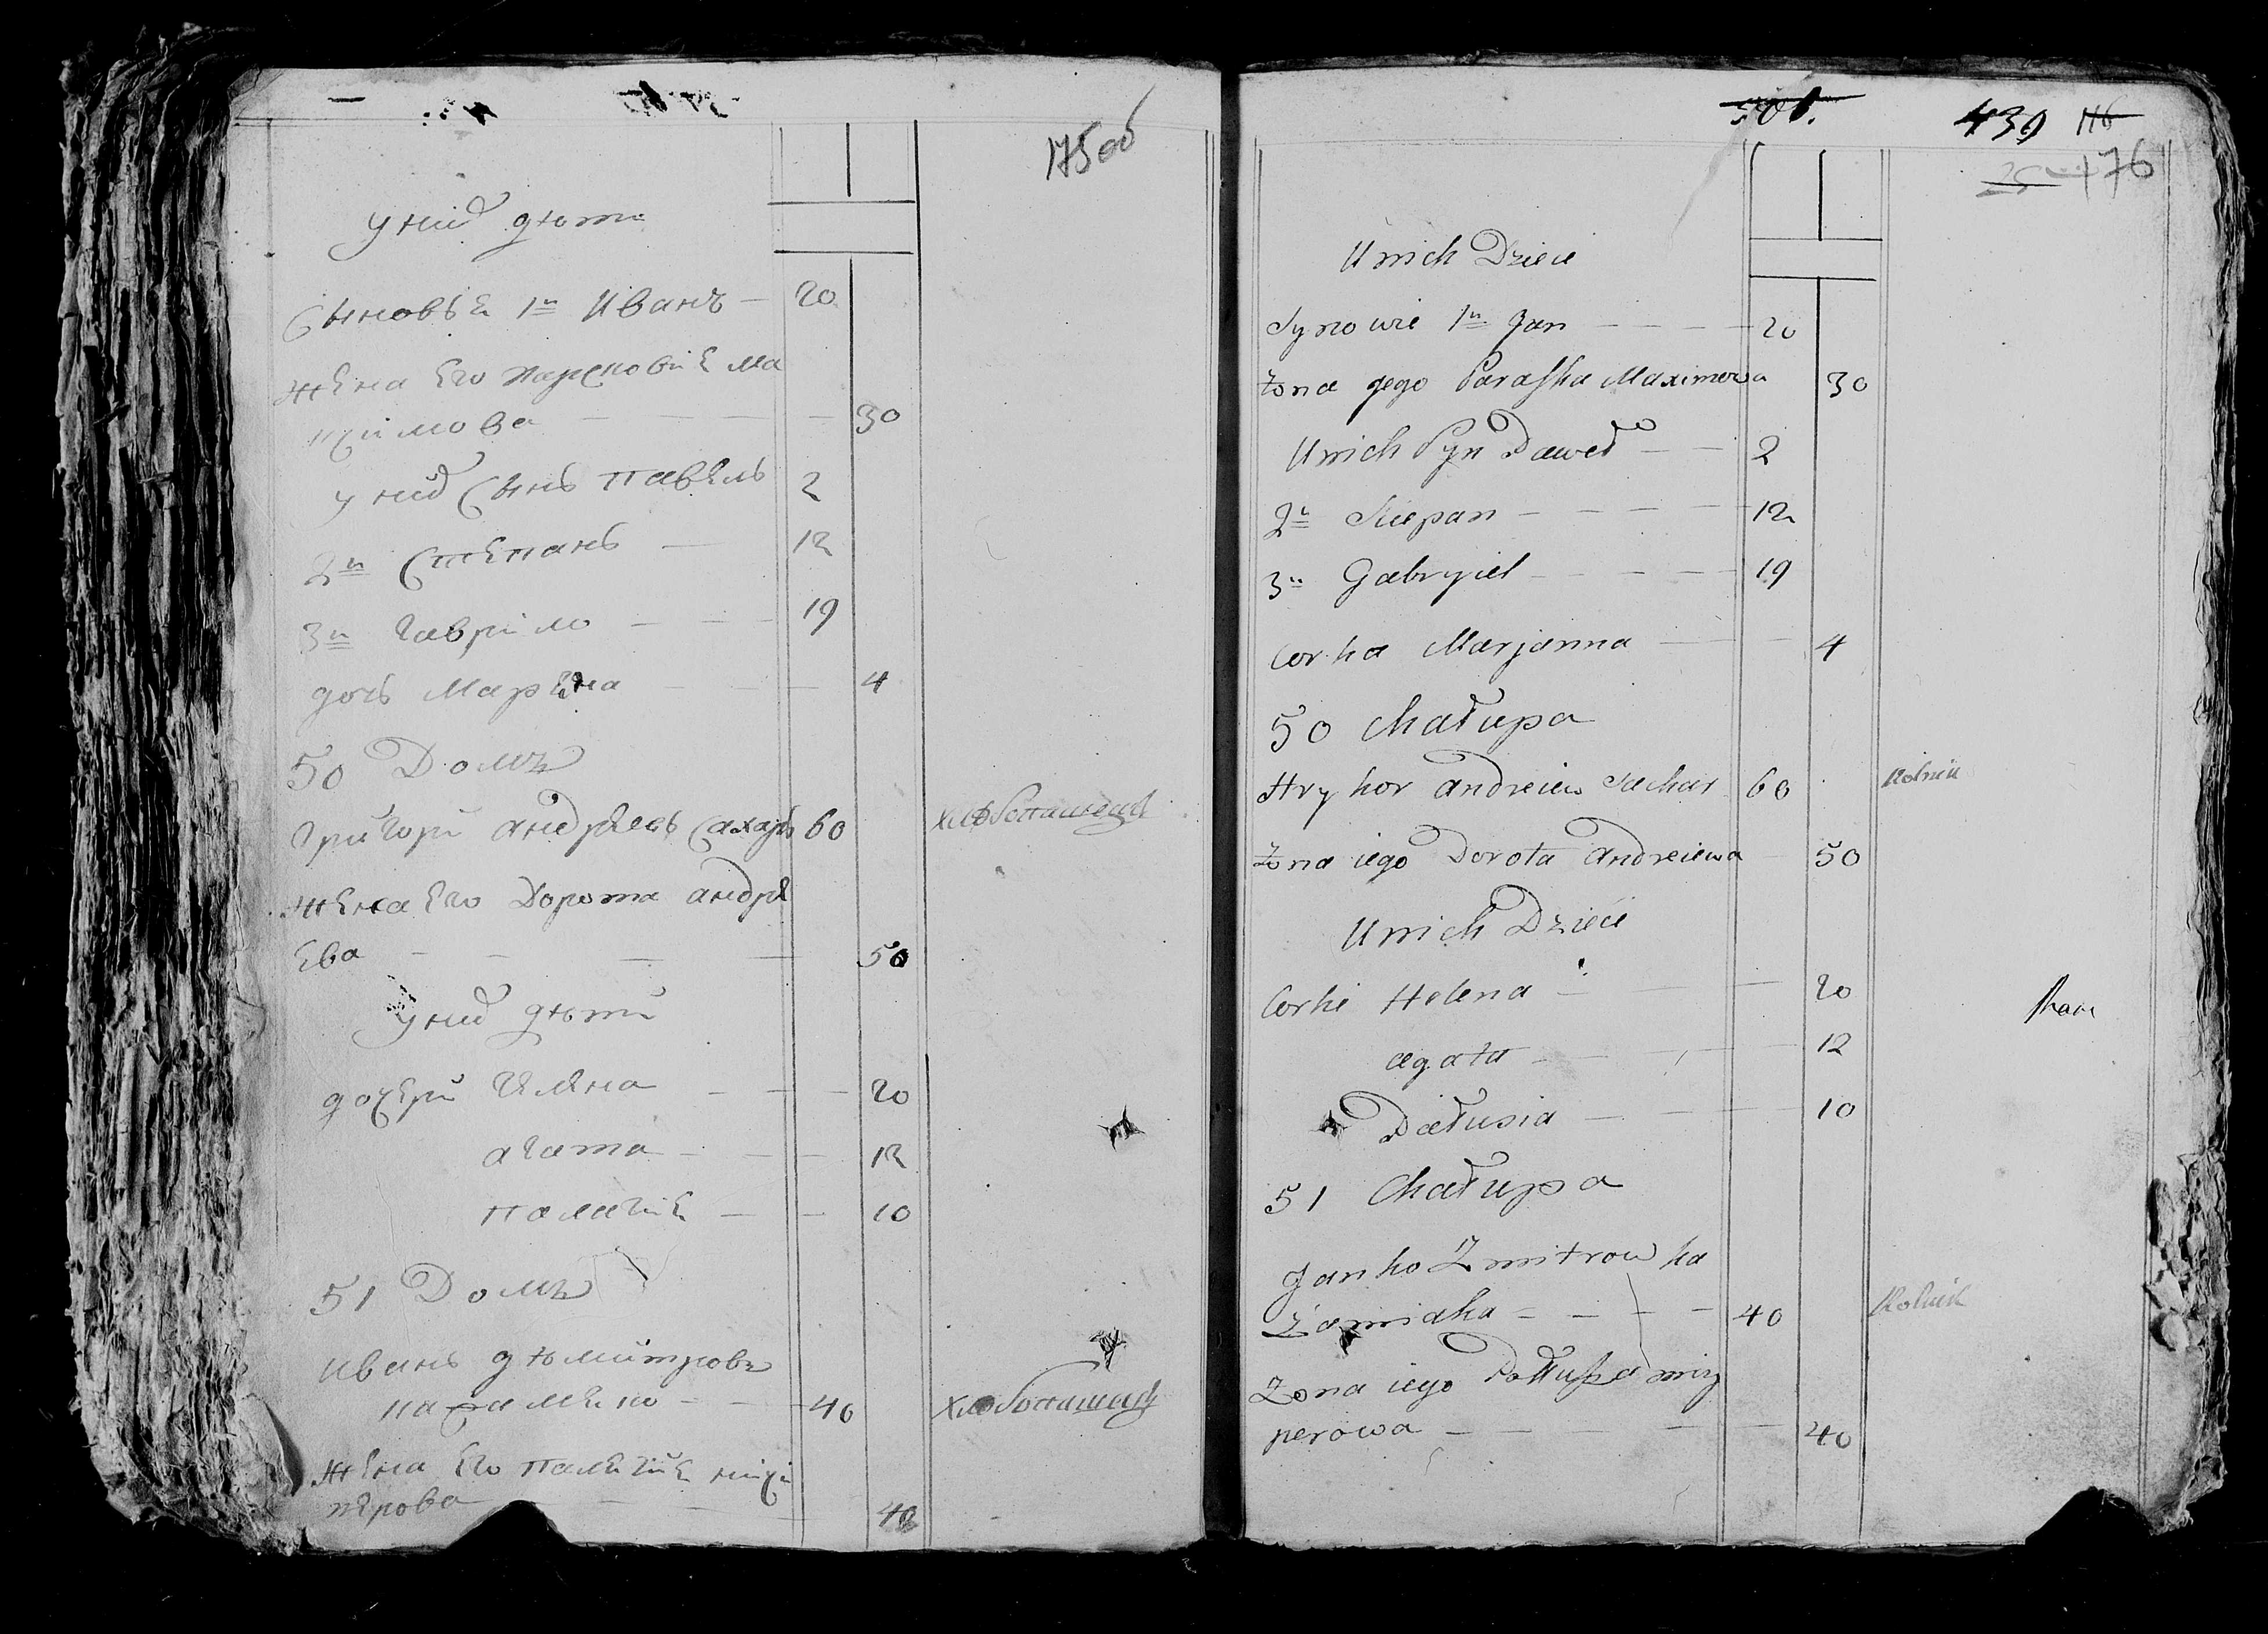 175об
у них дѣти
Сыновья 1й Иванъ — 20
жена Его парсковия Ма
ксимова — 30
у них Сынъ павелъ 2
2й Степанъ — 12
3й Гаврило — 19
дочь Марьяна — 4
50 Домъ
Григори андреевъ Сахаръ 60 хлебопашецъ
жена Его Дорота андре
Ева — 50
у них дѣти
дочери Гелена — 20
агата — 12
палагия — 10
51 Домъ
Иванъ дѣмитровъ
40 хлебопашецъ
жена Его палагия
перова — 40
501.
439 116
176
U nich Dzieci
Synowie 1n Jan — 20
Żona jego Paraska Maximowa 30
U nich Syn Paweł — 2
2n Stepan — 12
3n Gabryiel — 19
Corka Marjanna — 4
50 Chałupa
Hryhor Andreiew Sachar 60 Rolnik
Żona iego Dorota Andreiewa 50
U nich Dzieci
Corki Helena — 20
agata — 12
Pałusia — 10
51 Chałupa
Janko Zmitrow ka
40 Rolnik
Żona iego
perowa — 40